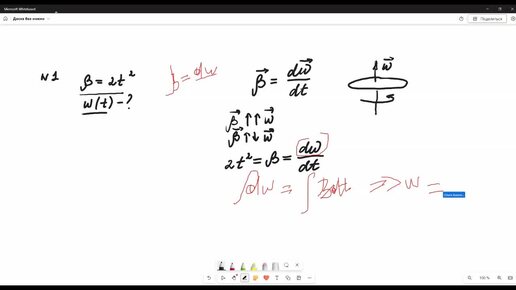 Microsoft Whiteboard
Доска без имени
Поделиться
N1
β = 2t²
w(t) - ?
β = dw
β⃗ = dw⃗/dt
w⃗
β⃗ ↑↑ w⃗
β⃗ ↑↓ w⃗
2t² = β = dw/dt
∫dw = ∫βdt => w =
100 %